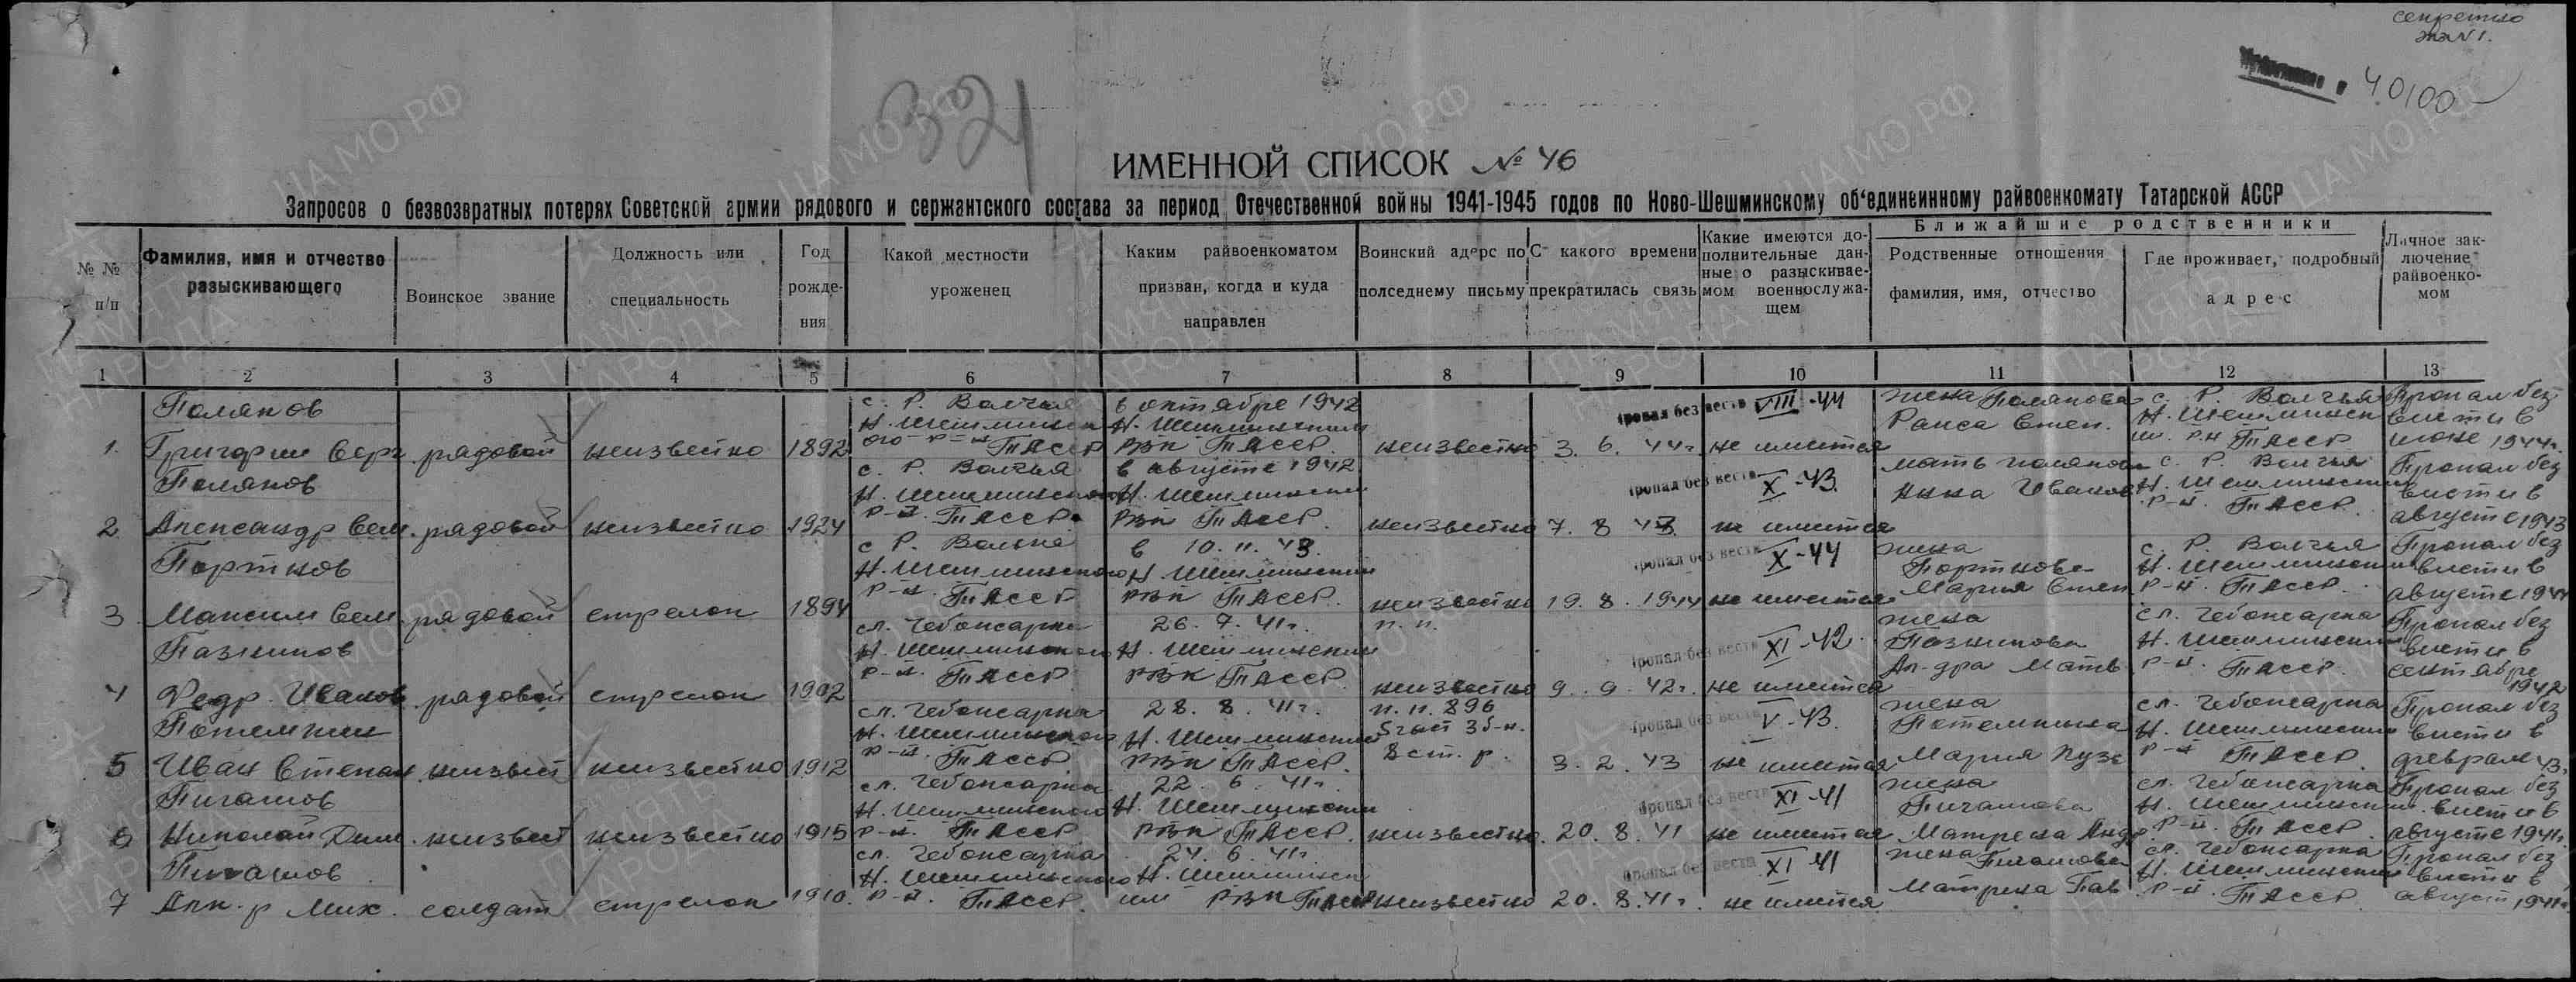 секретно
экз №1.
40100
321
ИМЕННОЙ СПИСОК № 46
Запросов о безвозвратных потерях Советской армии рядового и сержантского состава за период Отечественной войны 1941-1945 годов по Ново-Шешминскому об‘единенному райвоенкомату Татарской АССР
№ № п/п
Фамилия, имя и отчество разыскивающего
Воинское звание
Должность или специальность
Год рождения
Какой местности уроженец
Каким райвоенкоматом призван, когда и куда направлен
Воинский адерс по полседнему письму
С какого времени прекратилась связь
Какие имеются дополнительные данные о разыскиваемом военнослужащем
Ближайшие родственники
Родственные отношения фамилия, имя, отчество
Где проживает, подробный адрес
Личное заключение райвоенкомом
1 2 3 4 5 6 7 8 9 10 11 12 13
Поляков с. Р. Волчья в октябре 1942 Пропал без вести VIII-44 жена Полякова с. Р. Волчья Пропал без
Н. Шешминск Н. Шешминским Раиса Степ. Н. Шешминск вести в
1. Григорий Серг. рядовой неизвестно 1892 ого р-н ТАССР РВК ТАССР неизвестно 3. 6. 44г. не имеется им. р-н ТАССР июне 1944г.
Поляков с. Р. Волчья в августе 1942 Пропал без вести X-43 мать Полякова с. Р. Волчья Пропал без
Н. Шешминского Н. Шешминским Анна Иванов Н. Шешминский вести в
2 Александр Сем. рядовой неизвестно 1924 р-н. ТАССР. РВК ТАССР. неизвестно 7. 8 43 не имеется р-н. ТАССР. августе 1943
Портнов с Р. Волчья в 10. 11. 43. Пропал без вести X-44 жена с. Р. Волчья Пропал без
Н. Шешминского Н. Шешминским Портнова Н. Шешминский вести в
3 Максим Сем. рядовой стрелок 1894 р-н. ТАССР РВК ТАССР. неизвестно 19. 8. 1944 не имеется Мария Степ р-н. ТАССР. августе 1944
сл. Чебоксарка 26. 7. 41г. п. п. жена сл. Чебоксарка Пропал без
Пазников Н. Шешминского Н. Шешминским Пропал без вести XI-42 Пазникова Н. Шешминский вести в
4 Федр. Иванов. рядовой стрелок 1902 р-н. ТАССР РВК ТАССР. неизвестно 9. 9. 42г. не имеется Ал-дра Матв р-н. ТАССР. сентябре 1942
сл. Чебоксарка 28. 8. 41г. п. п. 896 жена сл. Чебоксарка Пропал без
Потемкин Н. Шешминского Н. Шешминским 5 част 3 б-н. Пропал без вести V-43. Потемкина Н. Шешминский вести в
5 Иван Степан. неизвест неизвестно 1912 р-н. ТАССР РВК ТАССР. 8 ст. р. 3. 2. 43 не имеется Мария Кузе р-н ТАССР. феврале 43.
сл. Чебоксарка 22. 6. 41г. жена сл. Чебоксарка Пропал без
Пигашов Н. Шешминского Н. Шешминским Пропал без вести XI-41 Пигашова Н. Шешминский вести в
6 Николай Дим. неизвест неизвестно 1915 р-н. ТАССР РВК ТАССР. неизвестно. 20. 8. 41 не имеется Матрена Андр. р-н. ТАССР. августе 1941г.
сл. Чебоксарка 24. 6. 41г. жена Пигашова сл. Чебоксарка Пропал без
Пигашов Н. Шешминского Н. Шешминск Пропал без вести XI-41 Н. Шешминский вести в
7 Алк-р Мих. солдат стрелок 1910. р-н. ТАССР. им РВК ТАССР неизвестно 20. 8. 41г. не имеется. Матрена Пав р-н. ТАССР. август 1941г.